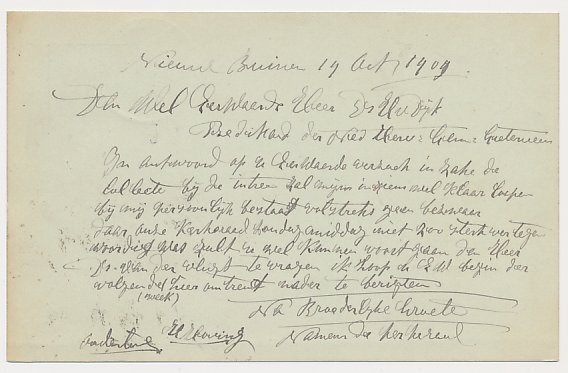 Nieuw Buinen 19 Oct 1909
Den Wel Eerwaarde Heer Ds
Predikant der Ned Herv: Gem:
In antwoord op u Eerwaarde verzoek in zake de
collecte bij de intree zal mijns inziens wel klaar loopen
bij mij persoonlijk bestaat volstrekt geen bezwaar
daar onze Kerkeraad Zondagmiddag niet zoo sterk vertegen
woordigd was zult u wel kunnen voort gaan den Heer
Ds van der Vlugt te vragen ik hoop u EW begin der
volgende hier omtrent nader te berigten
(week)
Na Broederlijke Groete
Namens de Kerkeraad
ouderling